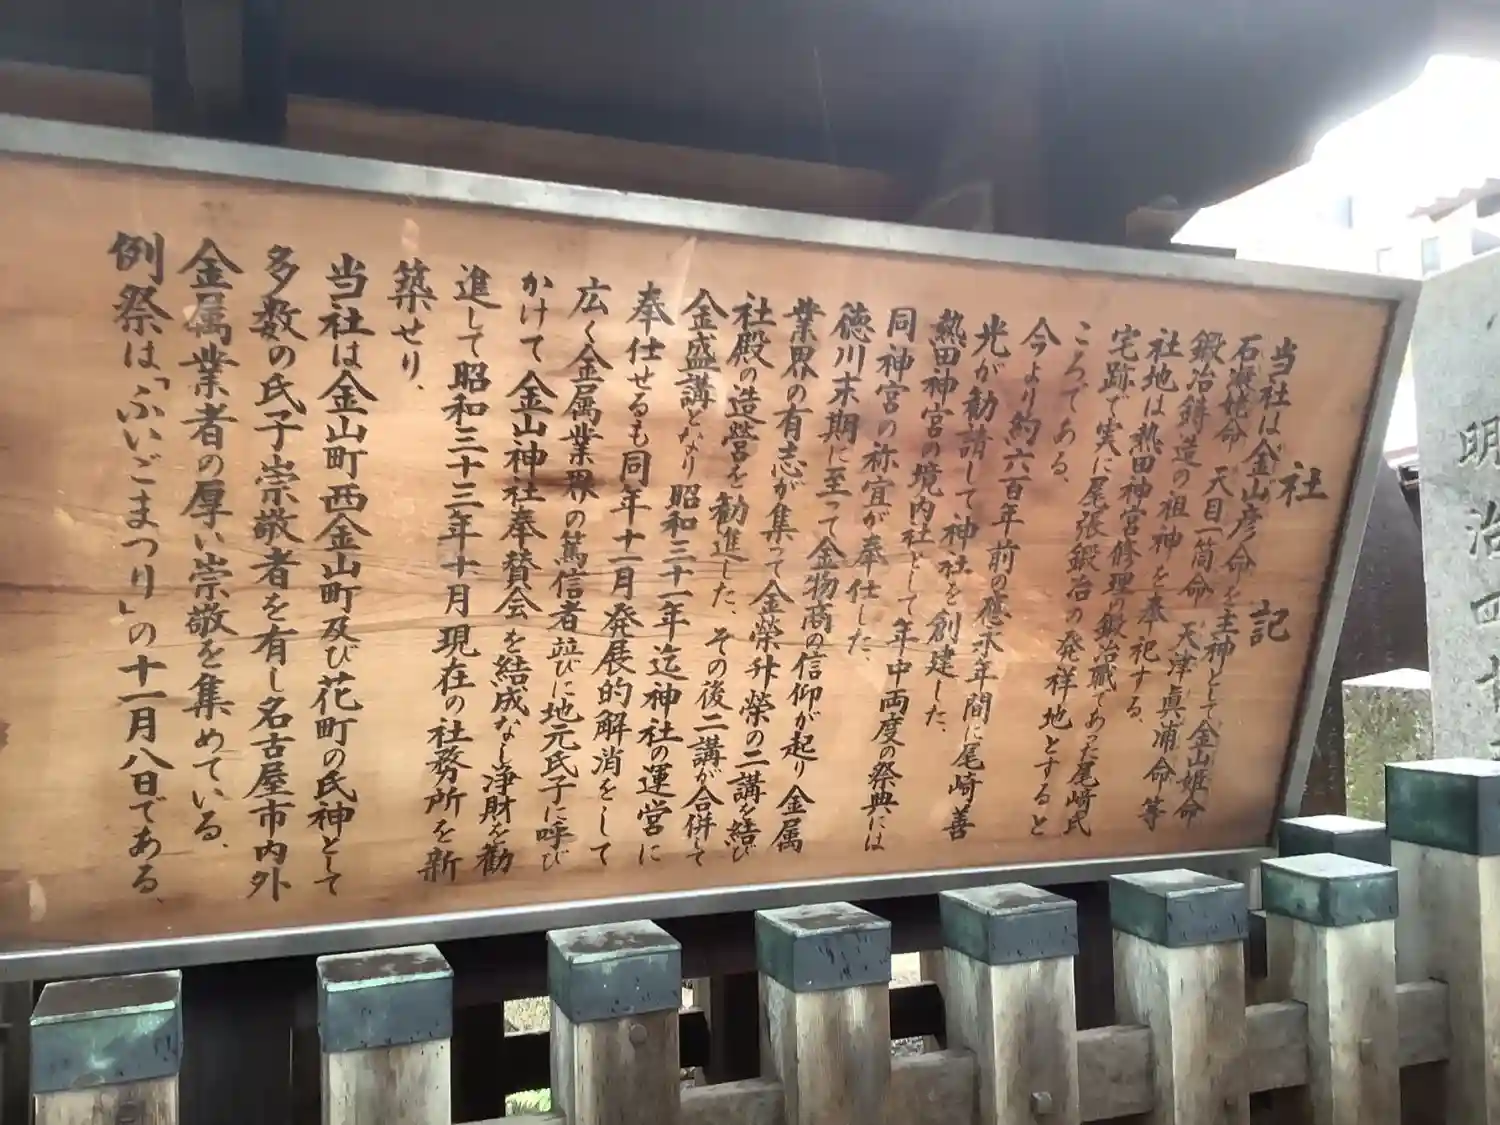 社記
当社は金山彦命を主神として金山姫命
石凝姥命 天目一箇命 天津眞浦命等
鍛冶鋳造の祖神を奉祀する、
社地は熱田神宮修理の鍛冶職であった尾崎氏
宅跡で実に尾張鍛冶の発祥地とすると
ころである、
今より約六百年前の應永年間に尾崎善
光が勧請して神社を創建した、
熱田神宮の境内社として年中両度の祭典には
同神宮の祢宜が奉仕した、
徳川末期に至って金物商の信仰が起り金属
業界の有志が集って金榮舛榮の二講を結び
社殿の造営を勧進した、その後二講が合併して
金盛講となり昭和三十一年迄神社の運営に
奉仕せるも同年十一月発展的解消をして
広く金属業界の篤信者並びに地元氏子に呼び
かけて金山神社奉賛会を結成なし浄財を勧
進して昭和三十三年十月現在の社務所を新
築せり、
当社は金山町西金山町及び花町の氏神として
多数の氏子崇敬者を有し名古屋市内外
金属業者の厚い崇敬を集めている、
例祭は「ふいごまつり」の十一月八日である、
明治四十